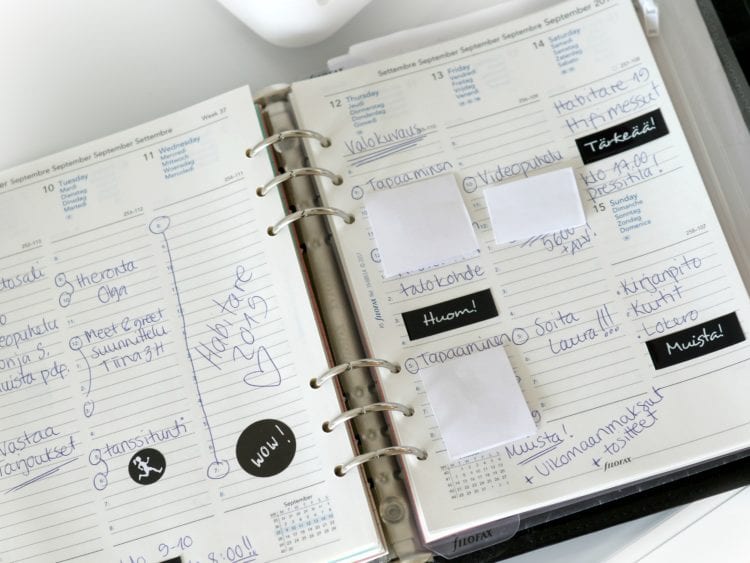 Settembre September Septembre September Settembre
Week 37
10 Tuesday
Mardi
Dienstag
Martes
Martedì
11 Wednesday
Mercredi
Mittwoch
Miércoles
Mercoledì
253-112
254-111
theronta
Olga
Meet & greet
suunnittelu
Tiina 3H
tanssitunti
Vastaa
tarjoukset
muista pdf.
9-10
8:00!!
Habitare
2019
WOW!
September
Settembre September Septembre September Settembre September
12 Thursday
Jeudi
Donnerstag
Jueves
Giovedì
Valokuvaus
Tapaaminen
talokohde
Huom!
Tapaaminen
Muista!
+ Ulkomaanmaksut
+ tositteet
13 Friday
Vendredi
Freitag
Viernes
Venerdì
256-109
Videopuhelu
5600
+ ALV!
Soita
Laura!!!
14 Saturday
Samedi
Samstag
Sábado
Sabato
257-108
Habitare 19
Hifimessut
Tärkeää!
klo 17.00
pressitila!
15 Sunday
Dimanche
Sonntag
Domingo
Domenica
258-107
Kirjanpito
Kuitit
Lokero
Muista!
filofax
filofax
filofax